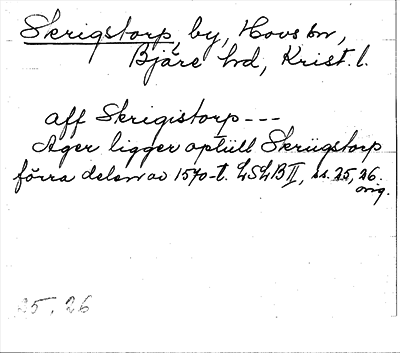 Skrigstorp, by, Hovs sn,
Bjäre hd, Krist. l.
aff Skrigistorp ---
Ager ligger optüll Skrügstorp
förra delen av 1570-t. LSLB II, ss. 25, 26.
orig.
25, 26